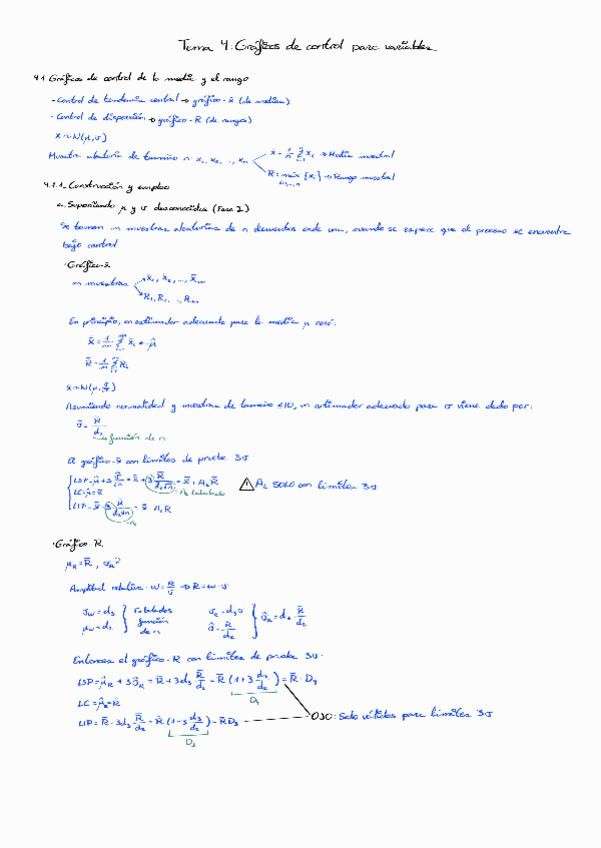 Tema 4: Gráficos de control para variables
4.1 Gráficos de control de la media y el rango
- Control de tendencia central → gráfico-x̄ (de medias)
- Control de dispersión → gráfico-R (de rangos)
X ~ N(μ,σ)
Muestra aleatoria de tamaño n: x₁, x₂, ..., xₙ
x̄ = 1/n Σ xᵢ → Media muestral
R = máx {xᵢ} → Rango muestral
4.1.1. Construcción y empleo
a. Suponiendo μ y σ desconocidas (Fase 2)
Se toman m muestras aleatorias de n elementos cada una, cuando se espera que el proceso se encuentra
bajo control
· Gráfico-x̄
m muestras
x̄₁, x̄₂, ..., x̄ₘ
R₁, R₂, ..., Rₘ
En principio, un estimador adecuado para la media μ será:
R̄ = 1/m Σ Rᵢ
Asumiendo normalidad y muestras de tamaño ≤10, un estimador adecuado para σ viene dado por:
σ̂ = R̄/d₂
función de n
El gráfico-x̄ con límites de prueba 3σ
A₂ tabulado
A₂ SOLO con límites 3σ
· Gráfico R
μ̂_R = R̄, σ̂_R?
Amplitud relativa: W = R/σ → R = W·σ
σ_W = d₃
μ_W = d₂
tabulados
función
de n
σ̂ = R̄/d₂
σ̂_R = d₃ · R̄/d₂
Entonces el gráfico-R con límites de prueba 3σ:
LSP = μ̂_R + 3σ̂_R = R̄ + 3d₃ R̄/d₂ = R̄ (1 + 3 d₃/d₂) = R̄ · D₄
D₄
LC = μ̂_R = R̄
LIP = R̄ - 3d₃ R̄/d₂ = R̄ (1 - 3 d₃/d₂) = R̄ D₃
OJO: Solo válidos para límites 3σ
D₃